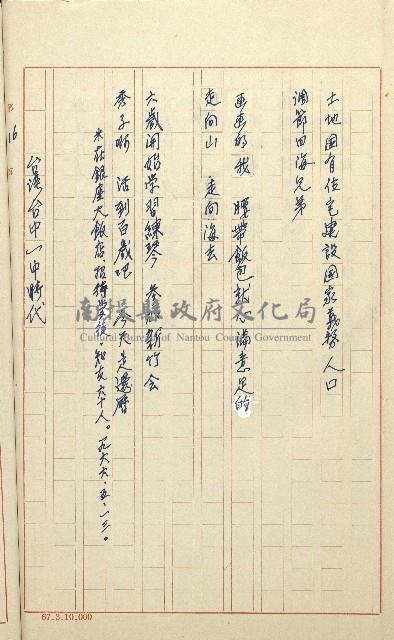 土地國有住宅建設國家義務人口
調節四海兄弟
畫畫的我 腰帶飯包就心滿意足的
走向山 走向海去
六歲開始學習練琴 參加新竹会
秀子喲 活到百歲吧 今天是還曆
米在銀座大飯店招待学後、知友六十人。一九六六、五、一三。
台灣台中一中時代
16
南投縣政府文化局
Cultural Bureau of Nantou County Government
67.3.10,000